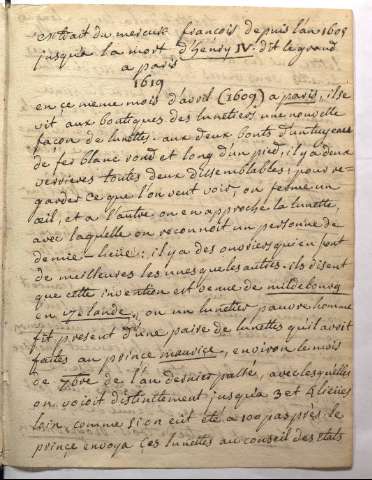 extrait du mercure françois depuis l'an 1605
jusqu'a la mort d'henry IV. dit le grand
a paris
1619
en ce meme mois d'avril (1609) a paris, il se
vit aux boutiques des lunetiers, une nouvelle
façon de lunettes. aux deux bouts d'un tuyeau
de fer blanc rond et long d'un pied, il y a deux
verrieres toutes deux dissemblables; pour re-
garder ce que l'on veut voir, on ferme un
œil, et a l'autre on en approche la lunette,
avec laquelle on reconnoit un personne de
demie-lieüe: il y a des ouvriers qui en font
de meilleures les unes que les autres. ils disent
que cette invention est venue de mildebourg
en zelande, ou un lunetier pauvre homme
fit present d'une paire de lunettes qu'il avoit
faittes au prince maurice, environ le mois
de 7bre de l'an dernier passe, avec lesquelles
on voioit distinctement jusqu'a 3 et 4 lieües
loin, comme si on eüt été a 100 pas près. le
prince envoya ces lunettes au conseil des etats